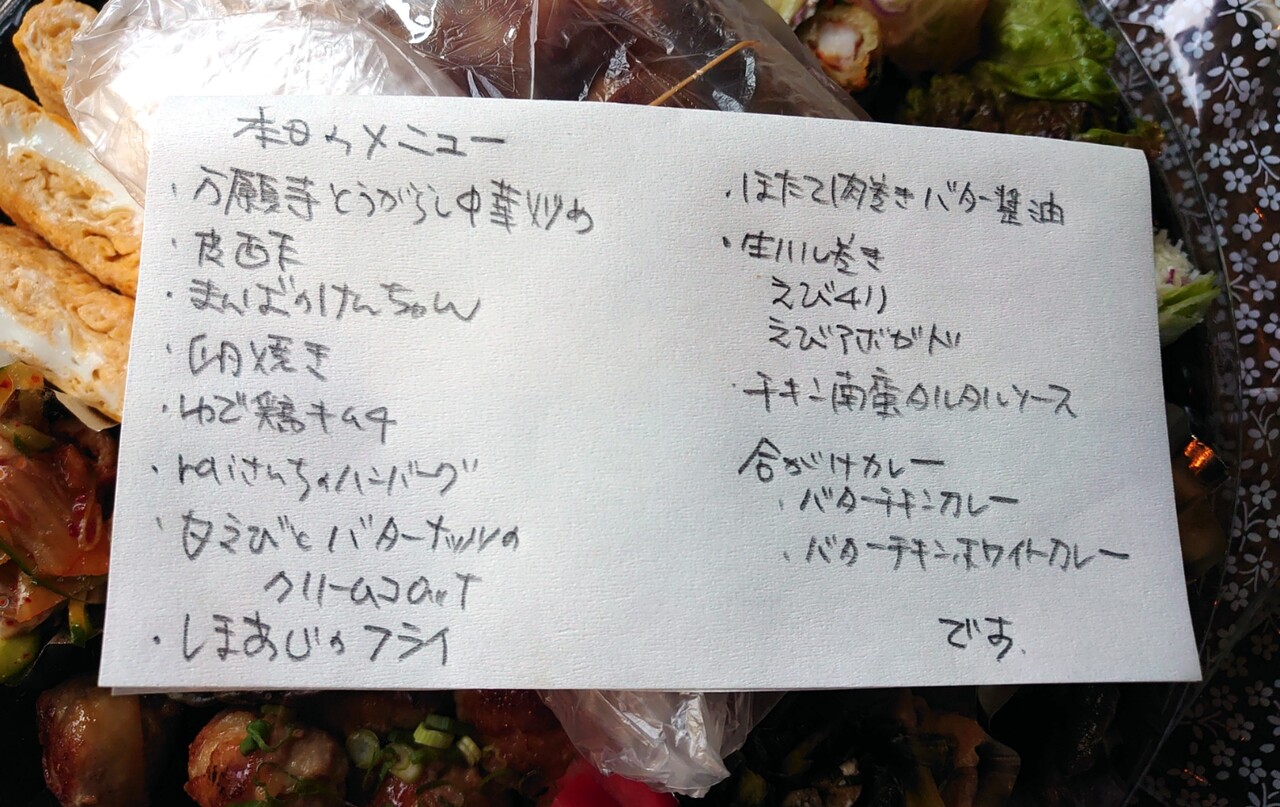 本日のメニュー
・万願寺とうがらし中華炒め
・皮酢
・まんばのけんちゃん
・卵焼き
・ゆで鶏キムチ
・raiさんちのハンバーグ
・甘えびとバターナッツの
クリームコロッケ
・しまあじのフライ
・ほたて肉巻きバター醤油
・生川し巻き
えびチリ
えびアボガド
・チキン南蛮タルタルソース
合がけカレー
・バターチキンカレー
・バターチキンホワイトカレー
です。